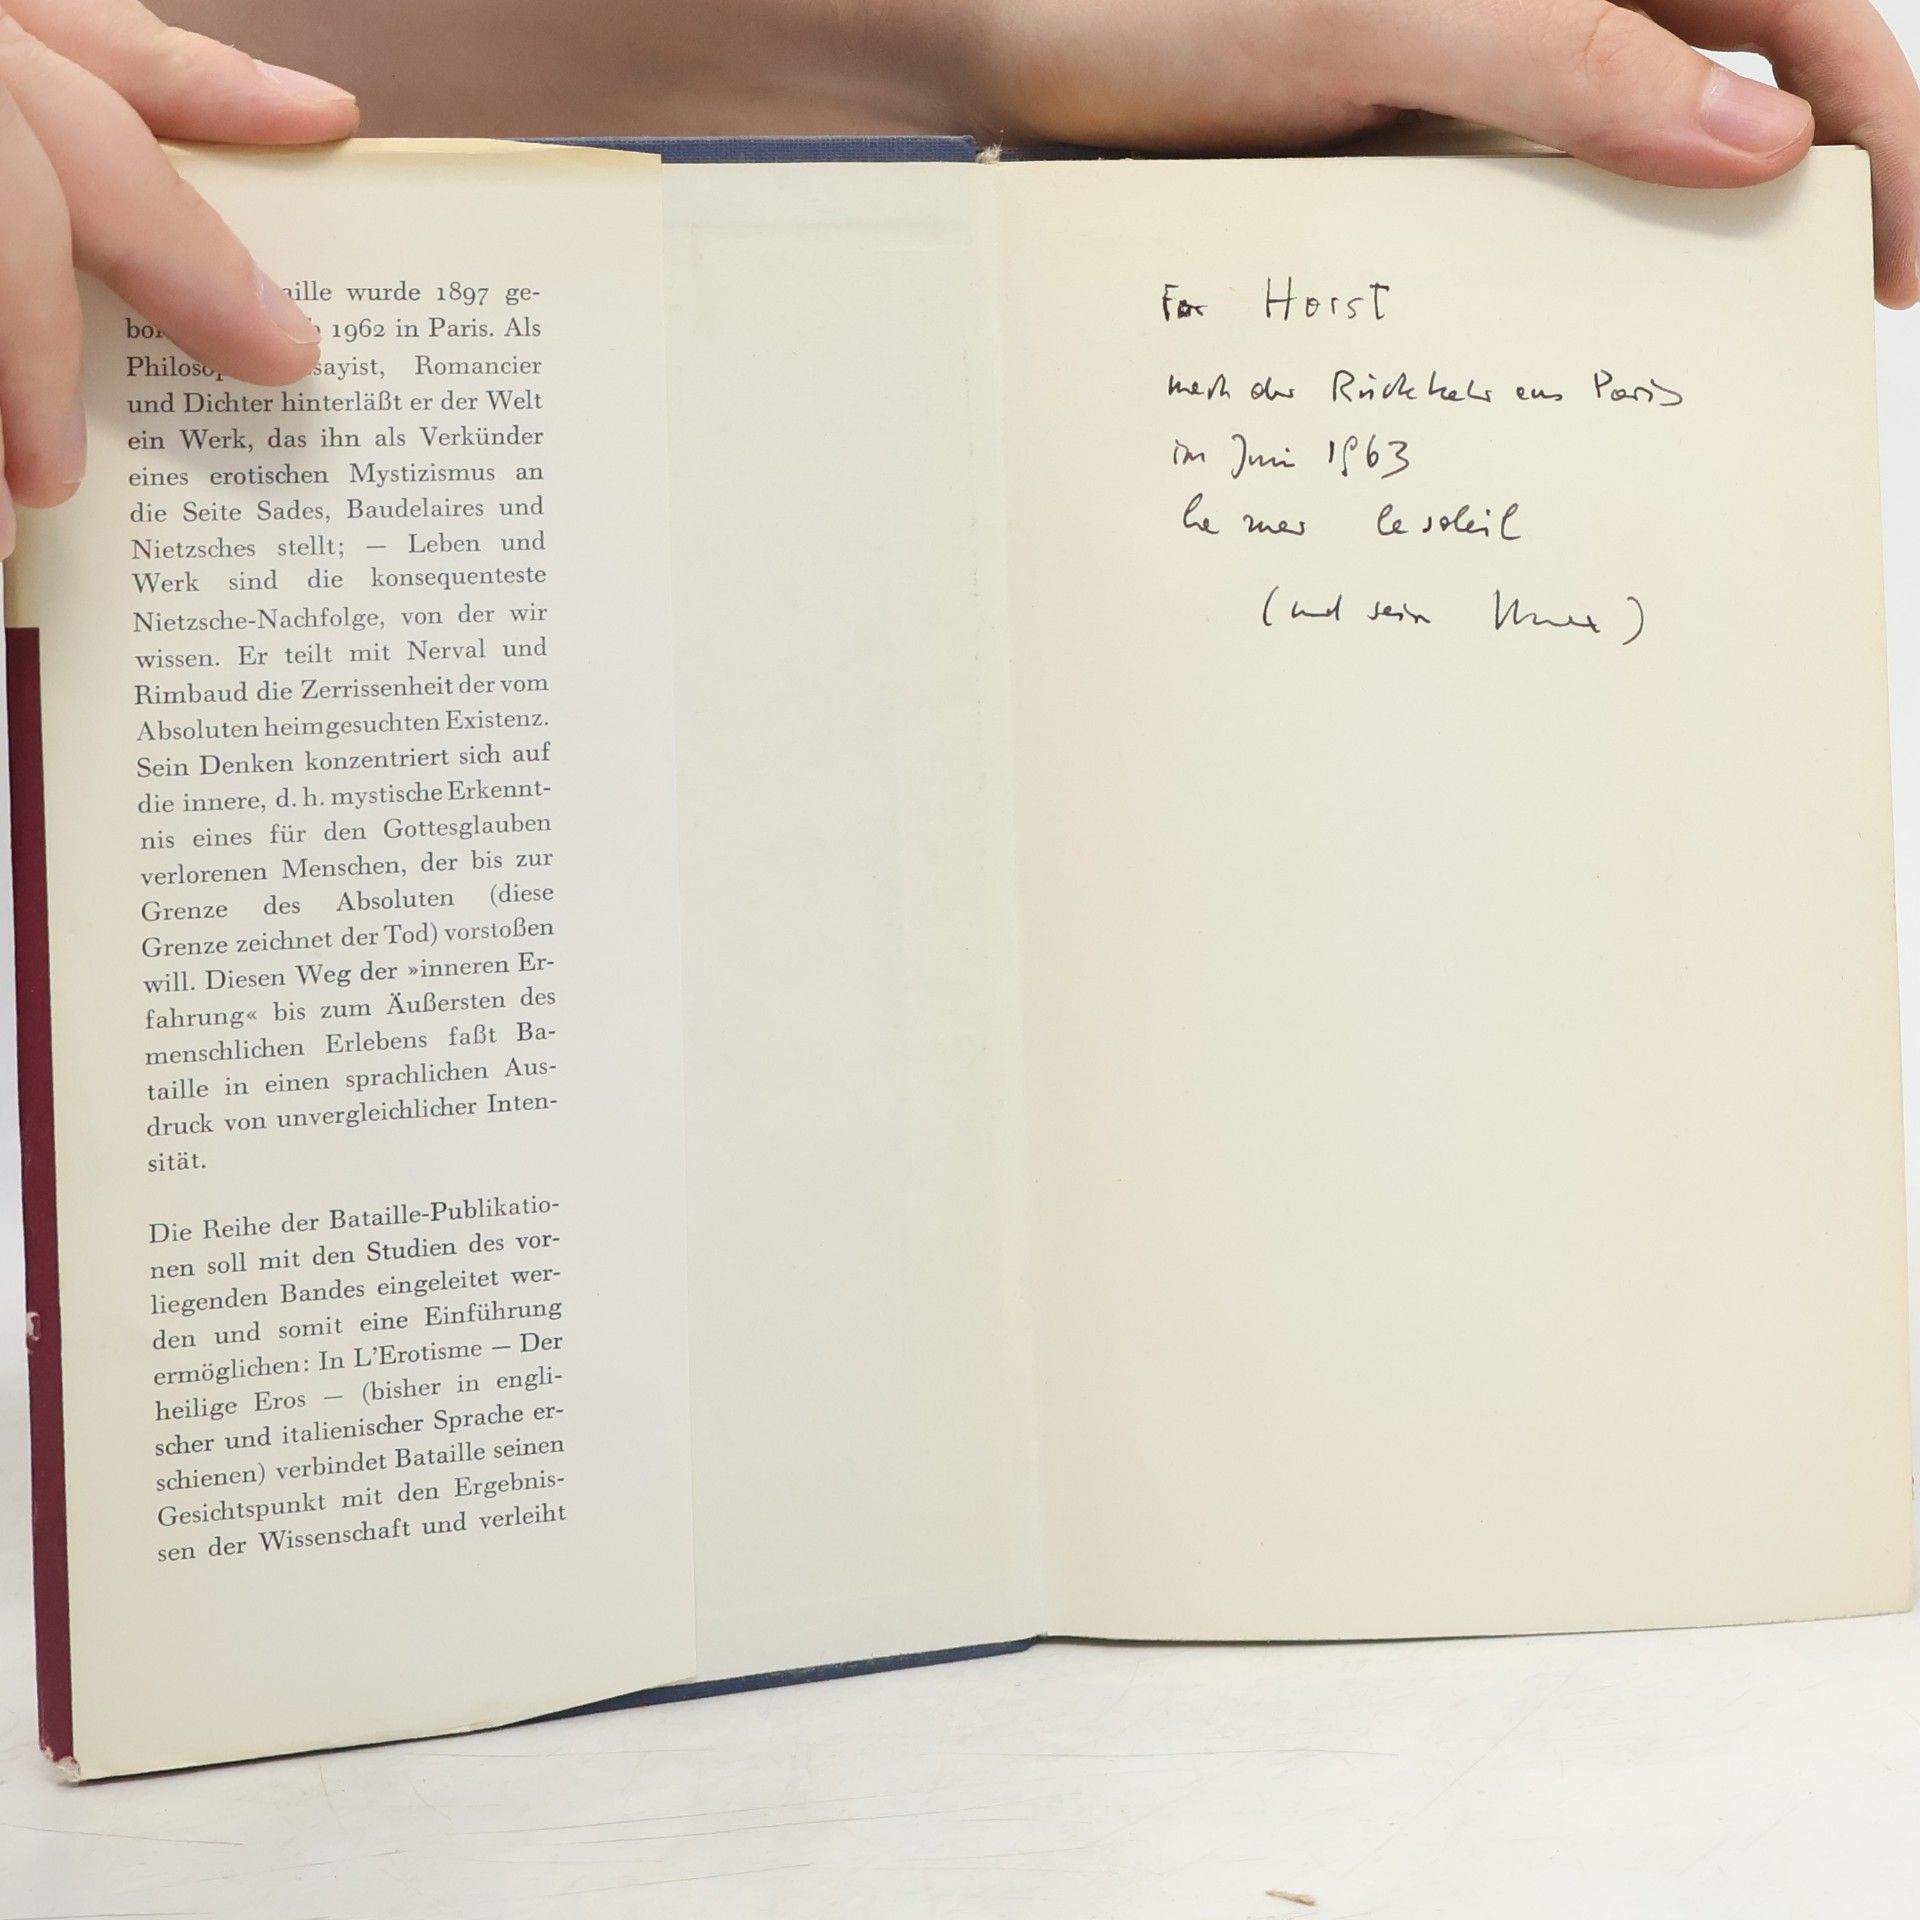 aille wurde 1897 ge-
1962 in Paris. Als
sayist, Romancier
und Dichter hinterläßt er der Welt
ein Werk, das ihn als Verkünder
eines erotischen Mystizismus an
die Seite Sades, Baudelaires und
Nietzsches stellt; — Leben und
Werk sind die konsequenteste
Nietzsche-Nachfolge, von der wir
wissen. Er teilt mit Nerval und
Rimbaud die Zerrissenheit der vom
Absoluten heimgesuchten Existenz.
Sein Denken konzentriert sich auf
die innere, d. h. mystische Erkennt-
nis eines für den Gottesglauben
verlorenen Menschen, der bis zur
Grenze des Absoluten (diese
Grenze zeichnet der Tod) vorstoßen
will. Diesen Weg der »inneren Er-
fahrung« bis zum Äußersten des
menschlichen Erlebens faßt Ba-
taille in einen sprachlichen Aus-
druck von unvergleichlicher Inten-
sität.
Die Reihe der Bataille-Publikatio-
nen soll mit den Studien des vor-
liegenden Bandes eingeleitet wer-
den und somit eine Einführung
ermöglichen: In L'Erotisme — Der
heilige Eros — (bisher in engli-
scher und italienischer Sprache er-
schienen) verbindet Bataille seinen
Gesichtspunkt mit den Ergebnis-
sen der Wissenschaft und verleiht
For Horst
nach der Rückkehr aus Paris
im Juni 1963
le soleil
(und sein